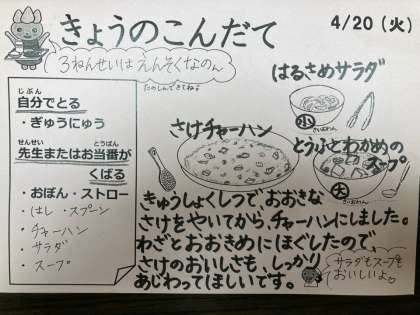 きょうのこんだて
4/20（火）
３ねんせいは えんそくなのん
たのしんできてね♪
じぶん
自分でとる
・ぎゅうにゅう
せんせい とうばん
先生またはお当番が
くばる
・おぼん・ストロー
・はし ・スプーン
・チャーハン
・サラダ
・スープ
はるさめサラダ
小
さいおわん
さけチャーハン
とうふとわかめの
スープ
大
さいおわん
きゅうしょくしつで、おおきな
さけをやいてから、チャーハンにしました。
わざとおおきめにほぐしたので、
さけのおいしさも、しっかり
あじわってほしいです。
サラダもスープも
おいしいよ♡